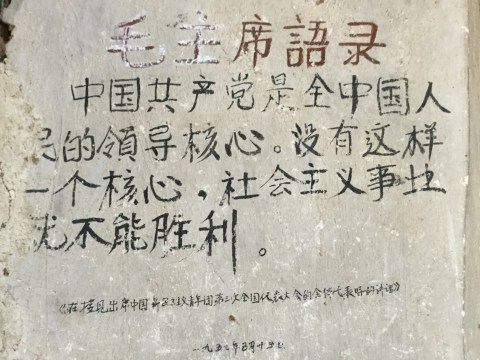 毛主席語录
中国共产党是全中国人
民的領导核心。没有这样
一个核心，社会主义事业
就不能胜利。
《在接見出席中国新民主主义青年团第三次全国代表大会的全体代表時的讲话》
一九五七年五月廿五日